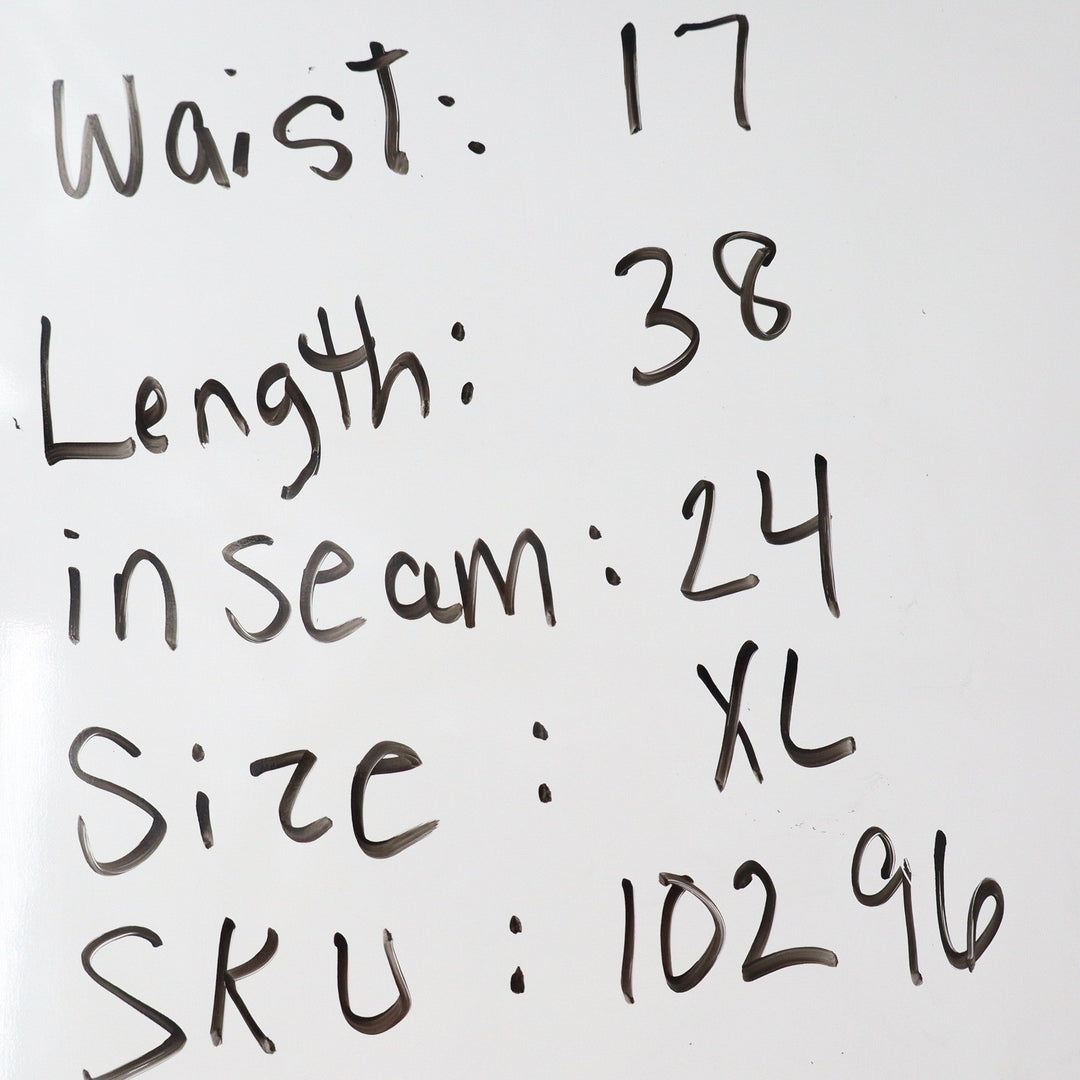 Waist: 17
Length: 38
in seam: 24
Size: XL
SKU: 10296